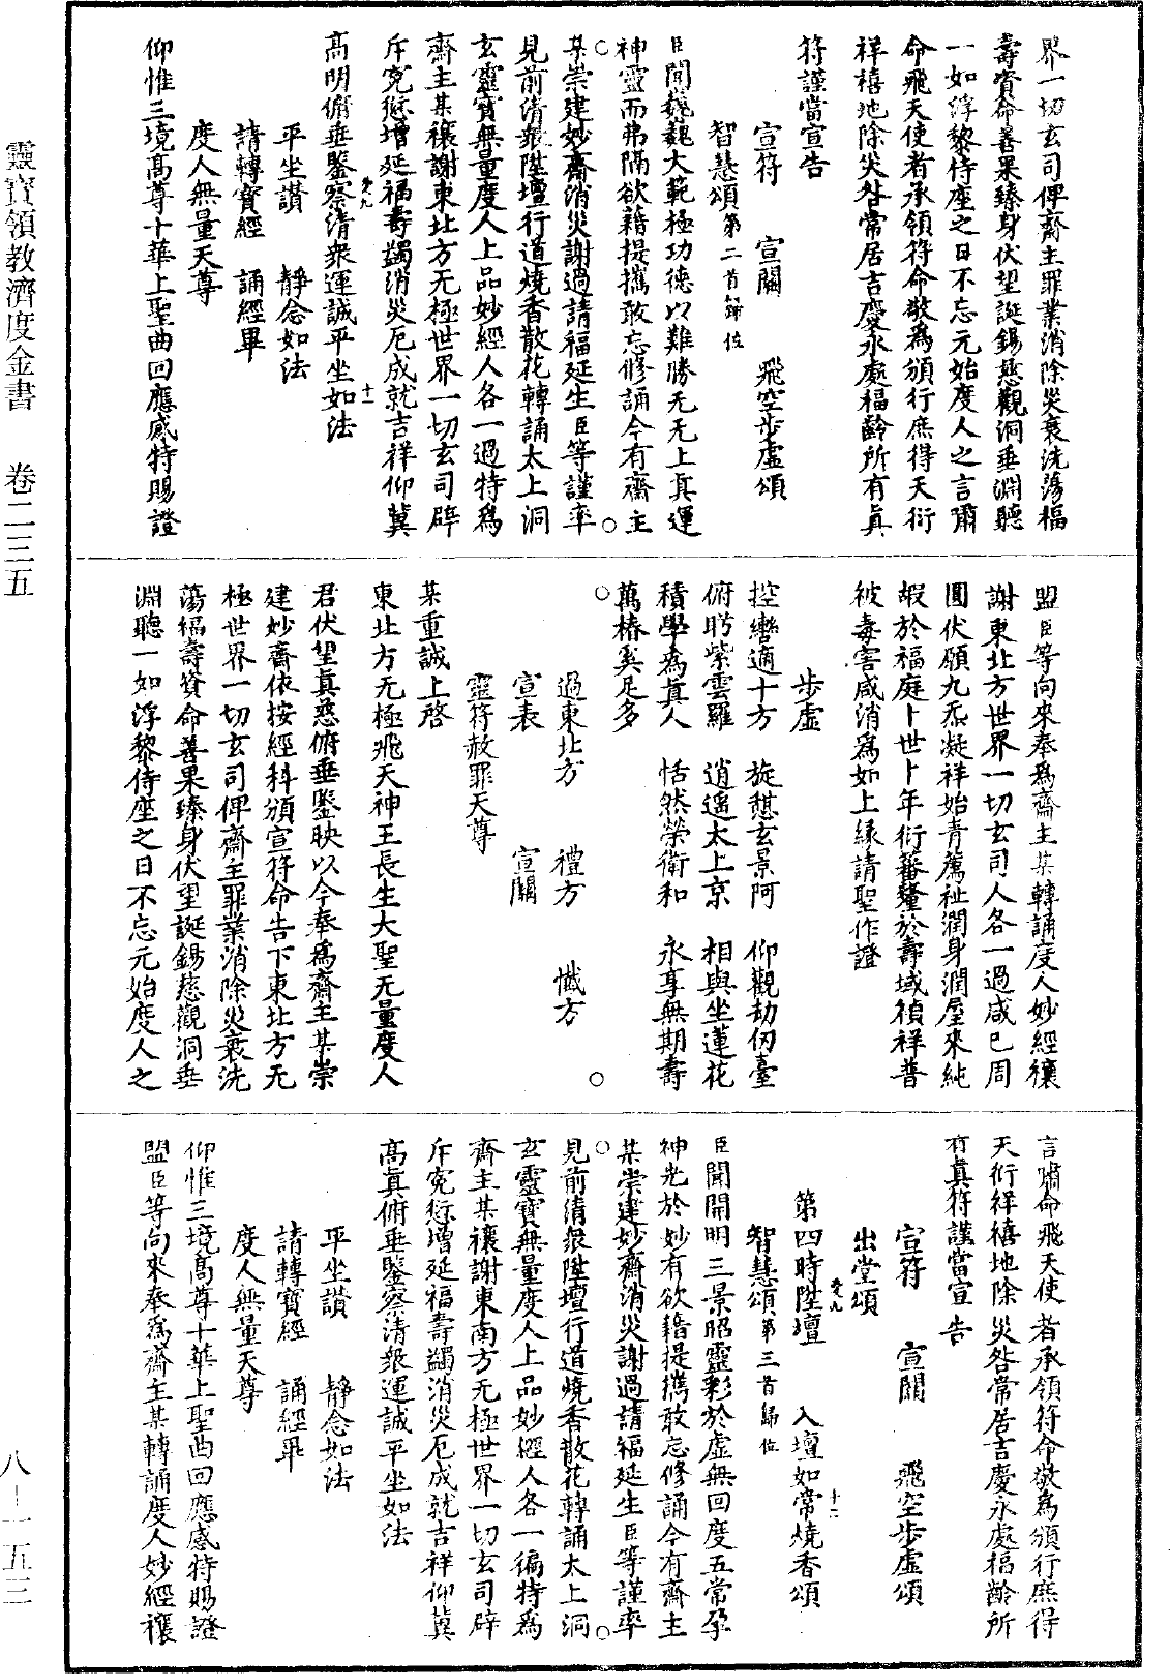 界一切玄司俾齋主罪業消除災衰洗蕩福
壽資命善果臻身伏望誕錫慈觀洞垂淵聽
一如浮黎侍座之日不忘元始度人之言嘯
命飛天使者承領符命敬爲頒行庶得天衍
祥禧地除災咎常居吉慶永處福齡所有眞
符謹當宣告
宣符　宣關　飛空步虛頌
智慧頌第二首歸位
臣聞巍巍大範極功德以難勝无无上眞運
神靈而弗隔欲藉提攜敢忘修誦今有齋主
某崇建妙齋消災謝過請福延生臣等謹率
見前清衆陞壇行道燒香散花轉誦太上洞
玄靈寶無量度人上品妙經人各一過特爲
齋主某禳謝東北方无極世界一切玄司辟
斥寃愆增延福壽蠲消災厄成就吉祥仰冀
高明俯垂鑒察清衆運誠平坐如法
平坐讃　靜念如法
請轉寶經　誦經畢
度人無量天尊
仰惟三境高尊十華上聖曲回應感特賜證
盟臣等向來奉爲齋主某轉誦度人妙經禳
謝東北方世界一切玄司人各一過咸已周
圓伏願九炁凝祥始青薦祉潤身潤屋來純
嘏於福庭卜世卜年衍蕃釐於壽域禎祥普
被毒害咸消爲如上縁請聖作證
步虛
控轡適十方　旋憇玄景阿　仰觀劫仞臺
俯眄紫雲羅　逍遥太上京　相與坐蓮花
積學爲眞人　恬然榮衛和　永享無期壽
萬椿奚足多
過東北方　禮方　懺方
宣表　宣關
靈符赦罪天尊
某重誠上啓
東北方无極飛天神王長生大聖无量度人
君伏望眞慈俯垂鑒映以今奉爲齋主某崇
建妙齋依按經科頒宣符命告下東北方无
極世界一切玄司俾齋主罪業消除災衰洗
蕩福壽資命善果臻身伏望誕錫慈觀洞垂
淵聽一如浮黎侍座之日不忘元始度人之
言嘯命飛天使者承領符命敬爲頒行庶得
天衍祥禧地除災咎常居吉慶永處福齡所
有眞符謹當宣告
宣符　宣關　飛空步虛頌
出堂頌
第四時陞壇　入壇如常燒香頌
智慧頌第三首歸位
臣聞開明三景昭靈彩於虛無回度五常孕
神光於妙有欲藉提攜敢忘修誦今有齋主
某崇建妙齋消災謝過請福延生臣等謹率
見前清衆陞壇行道燒香散花轉誦太上洞
玄靈寶無量度人上品妙經人各一徧特爲
齋主某禳謝東南方无極世界一切玄司辟
斥寃愆增延福壽蠲消災厄成就吉祥仰冀
高眞俯垂鑒察清衆運誠平坐如法
平坐讃　靜念如法
請轉寶經　誦經畢
度人無量天尊
仰惟三境高尊十華上聖曲回應感特賜證
盟臣等向來奉爲齋主某轉誦度人妙經禳
靈寶領教濟度金書　卷二三五
八—一五三